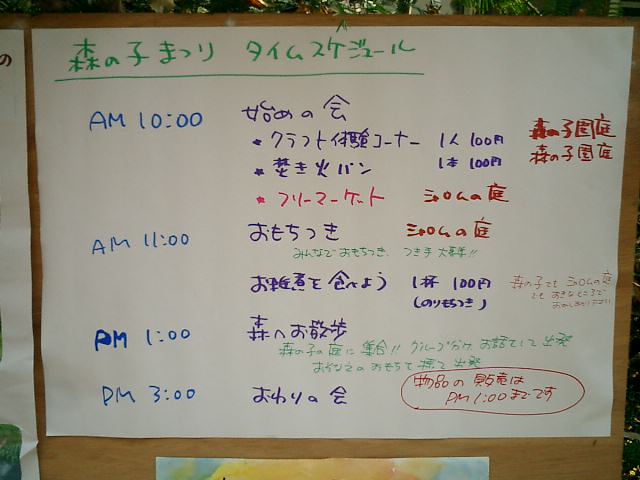 の
森の子まつり タイムスケジュール
AM 10:00 始めの会
・クラフト体験コーナー 1人 100円 森の子園庭
・焚き火パン 1本 100円 森の子園庭
・フリーマーケット シャロムの庭
AM 11:00 おもちつき シャロムの庭
みんなでおもちつき、つき手大募集!!
お雑煮を食べよう 1杯 100円 森の子でもシャロムの庭
(のりもつき) でもおきなところで
PM 1:00 森へお散歩
森の子の庭に集合!! グループ分け お話をして出発
出発
PM 3:00 おわりの会
物品の販売は
PM 1:00までです